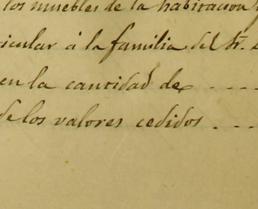 los muebles de la habitacion
icular á la familia del Sr.
en la cantidad de . . . .
de los valores cedidos . . .